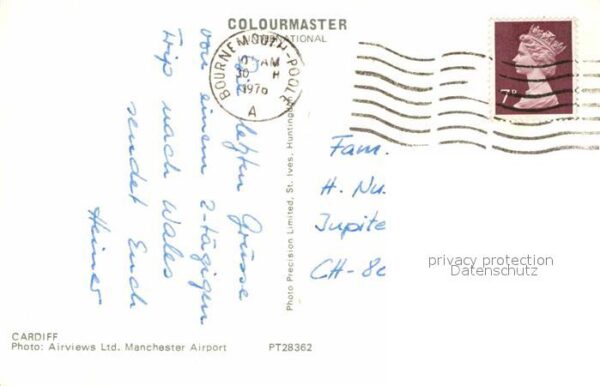 COLOURMASTER
INTERNATIONAL
BOURNEMOUTH-POOLE
AM
30
1976
A
7P
letzten Grüsse
von einem 2-tägigen
Trip nach Wales
sendet Euch
Heiner
Photo Precision Limited, St. Ives, Huntingdon
Fam.
H. Nu
Jupite
CH-8c
privacy protection
Datenschutz
CARDIFF
Photo: Airviews Ltd. Manchester Airport PT28362